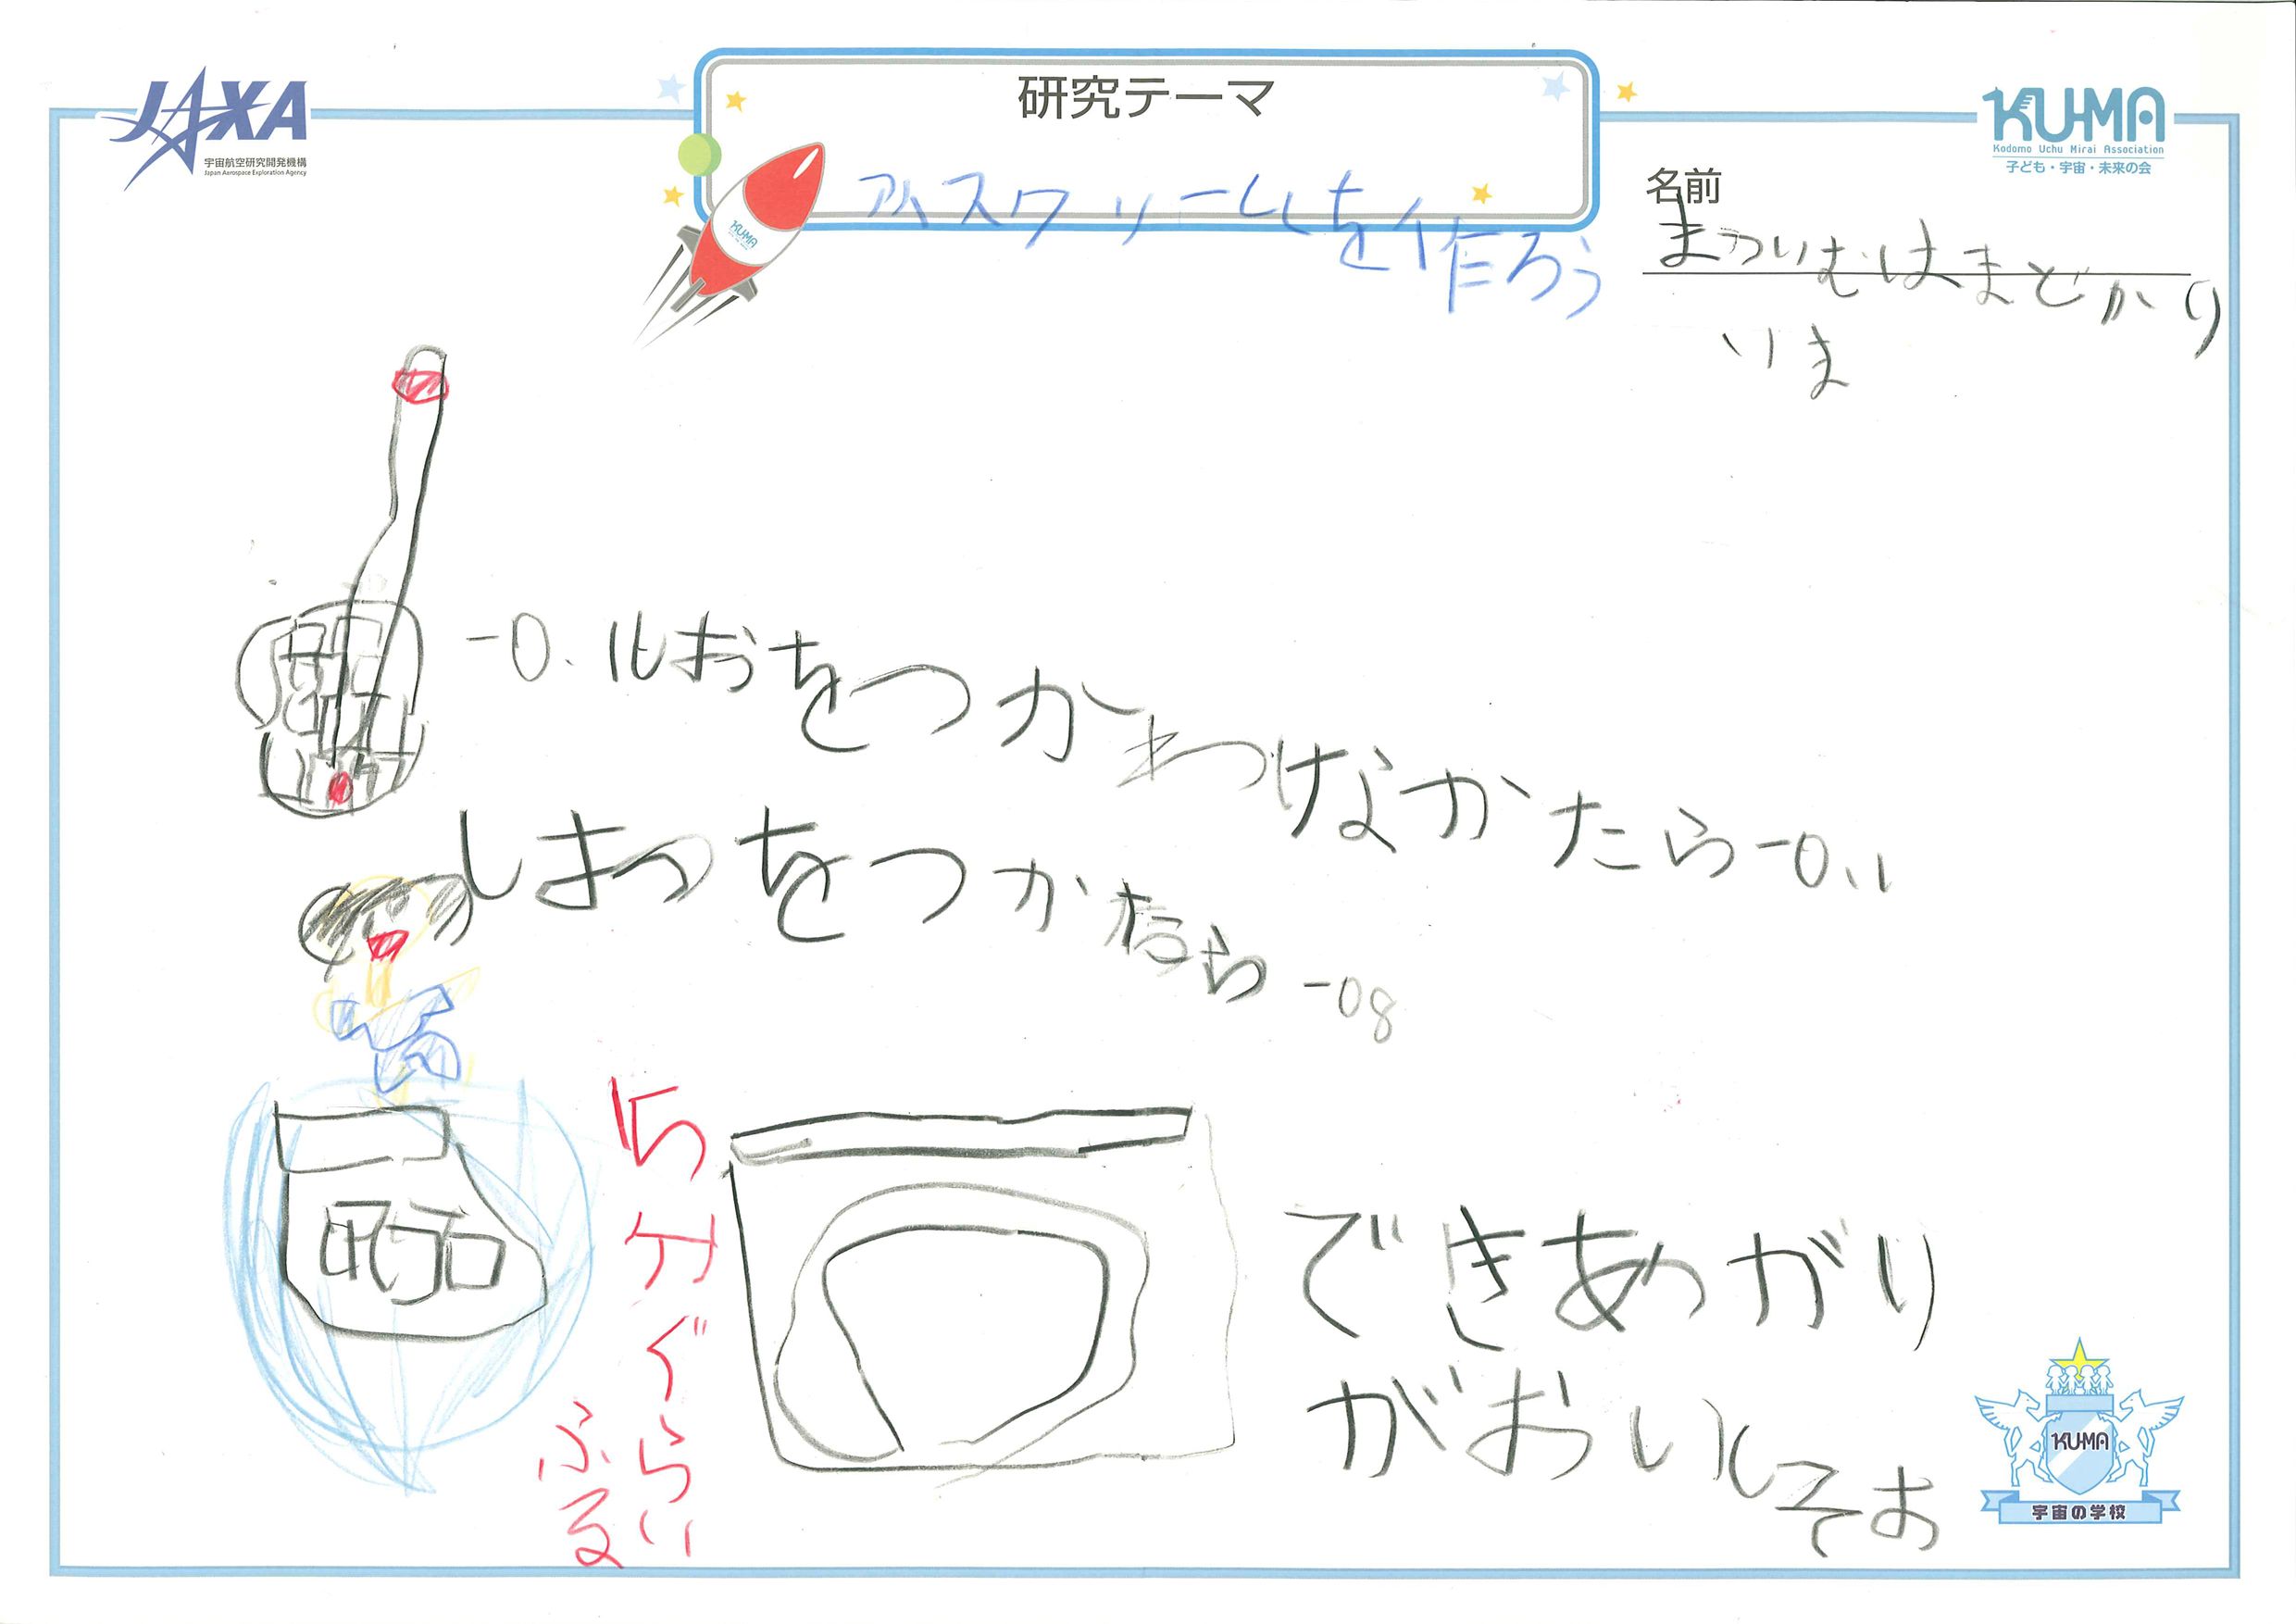 JAXA
宇宙航空研究開発機構
Japan Aerospace Exploration Agency
研究テーマ
アイスクリームを作ろう
KU-MA
Kodomo Uchu Mirai Association
子ども・宇宙・未来の会
名前
KU-MA
-0.1しおをつかわつけなかたら-0.1
しおをつかたら -08
5分ぐらい
ふる
できあがり
がおいしそお
KU-MA
宇宙の学校